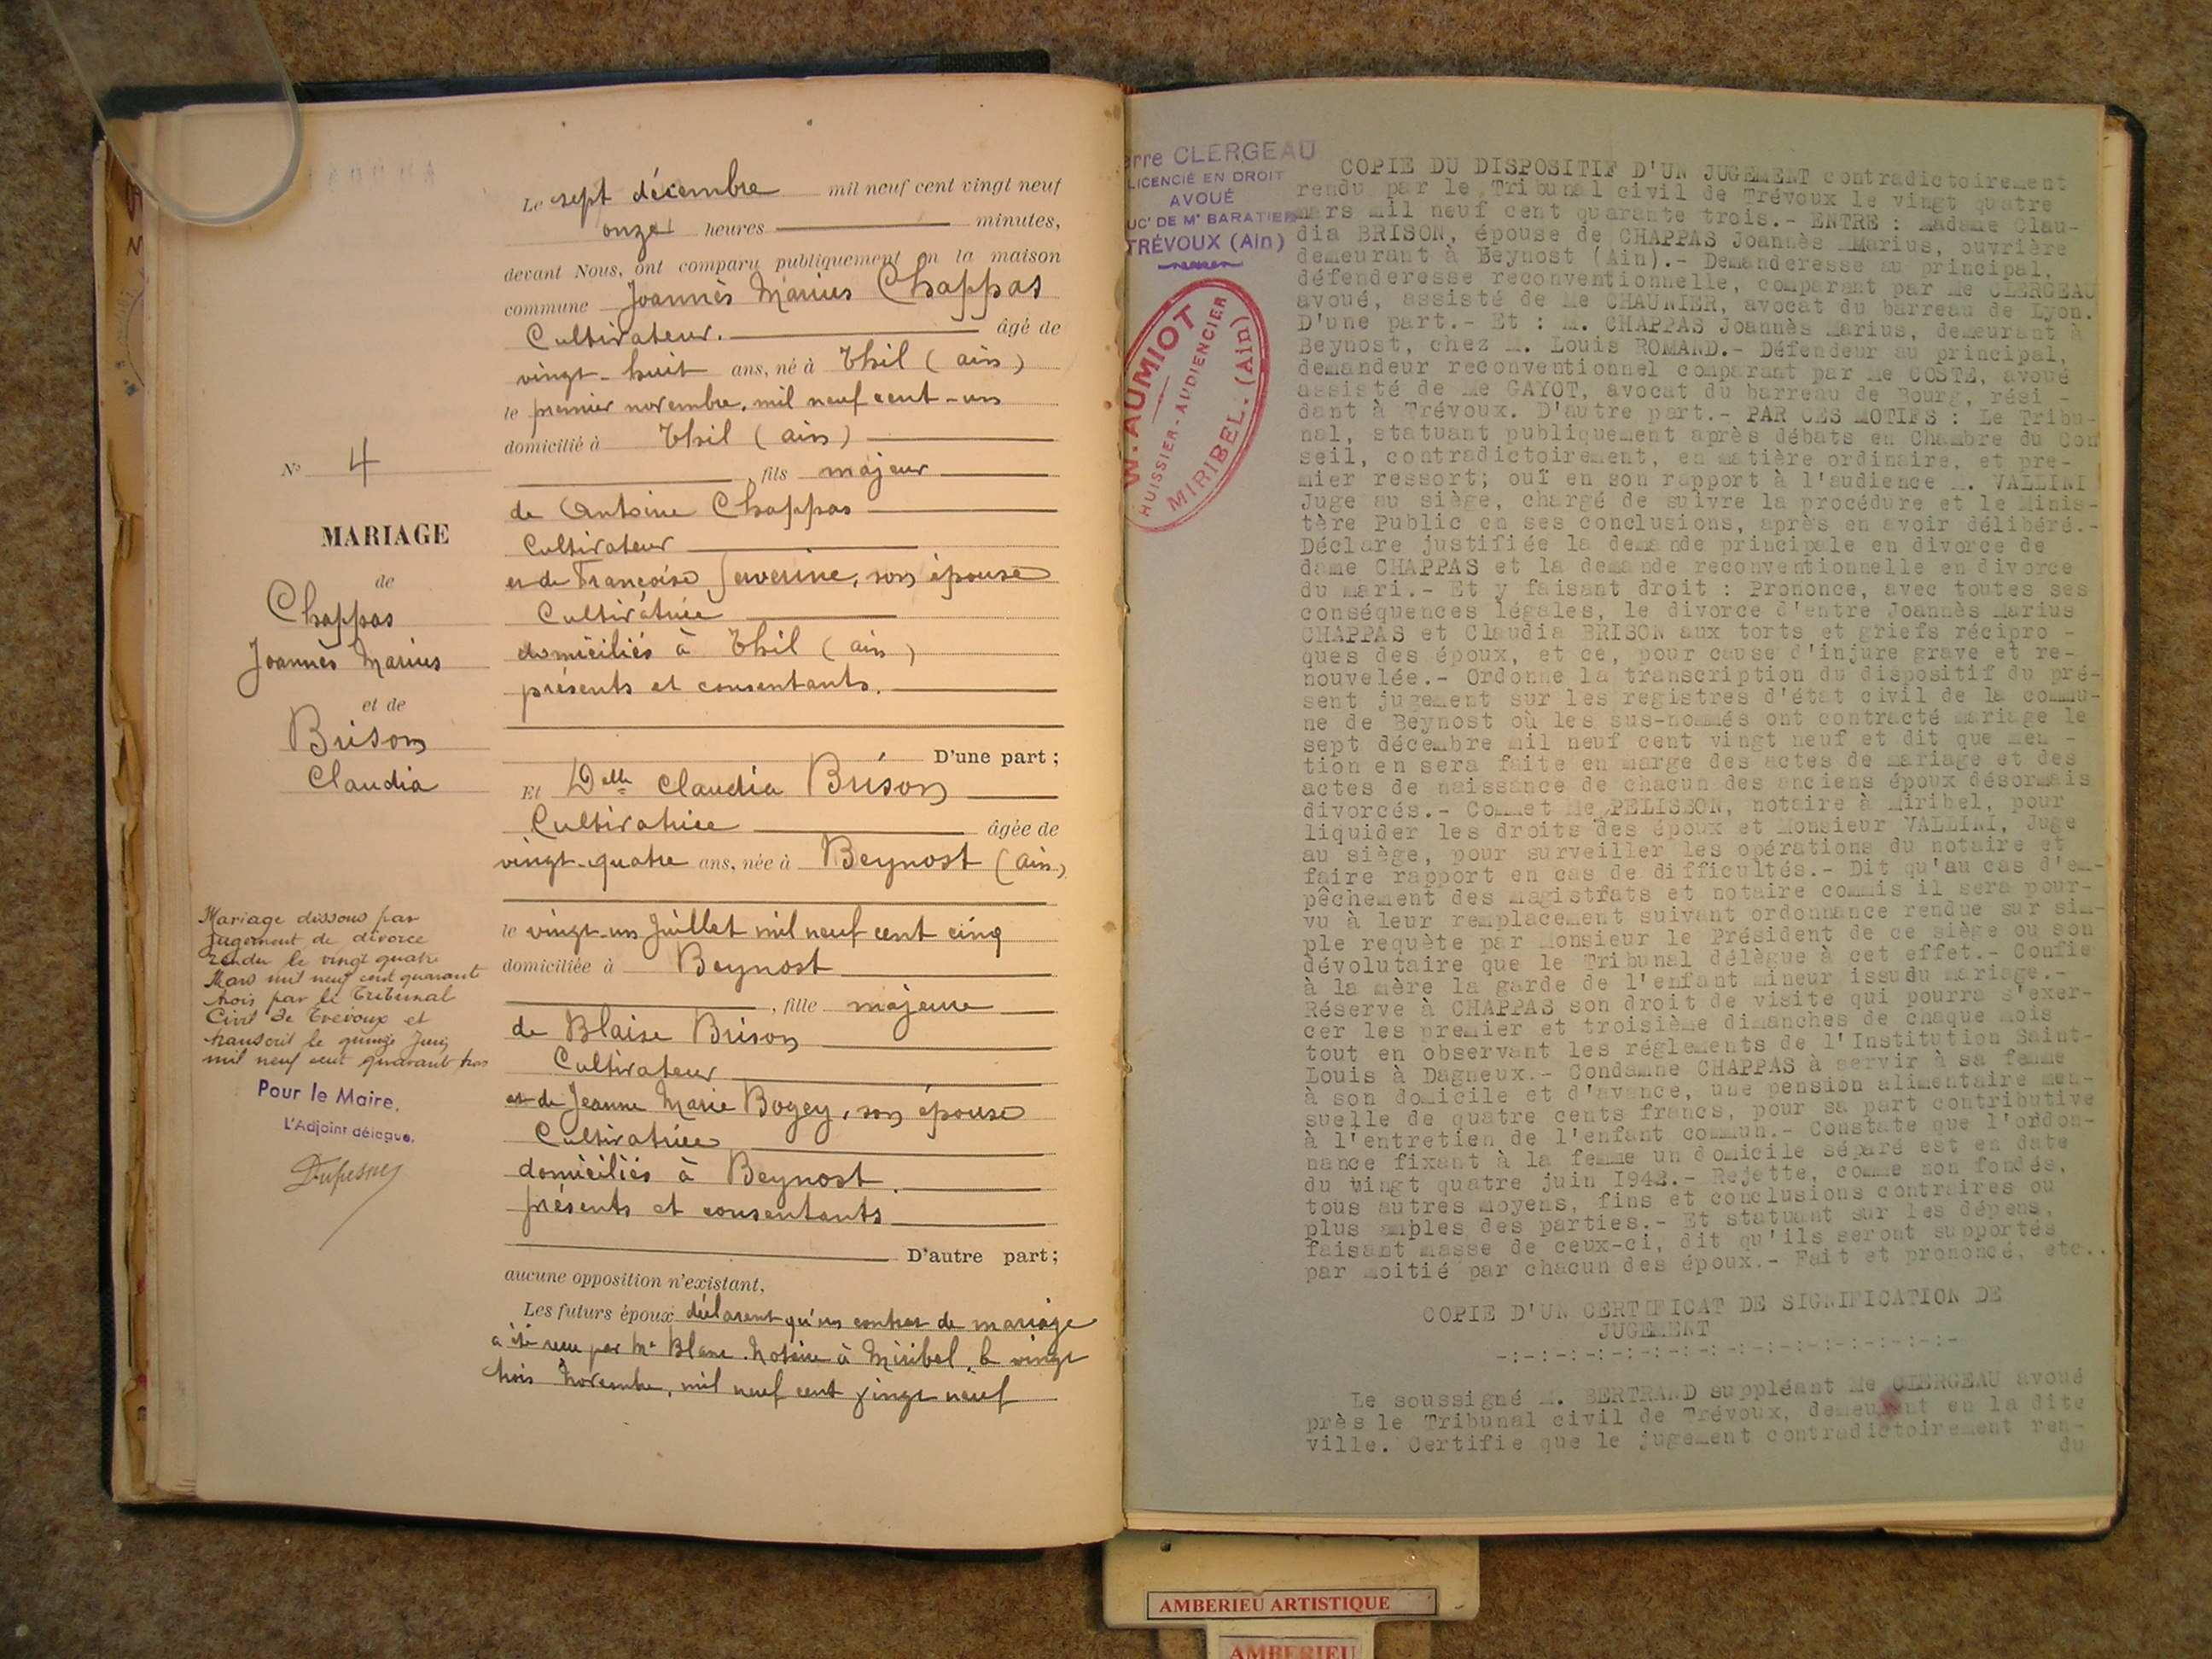 Le sept décembre mil neuf cent vingt neuf
onze heures minutes,
devant Nous, ont comparu publiquement en la maison
commune Joannès Marius Chappas
Cultivateur. âgé de
vingt-huit ans, né à Thil (ain)
le premier novembre, mil neuf cent-un
domicilié à Thil (ain)
, fils majeur
de Antoine Chappas
Cultivateur
et de Françoise Serverine, son épouse
Cultivatrice
domiciliés à Thil (ain)
présents et consentants.
D'une part ;
Et Delle Claudia Brison
Cultivatrice âgée de
vingt-quatre ans, née à Beynost (ain)
le vingt-un Juillet mil neuf cent cinq
domiciliée à Beynost
, fille majeure
de Blaise Brison
Cultivateur
et de Jeanne Marie Bogey, son épouse
Cultivatrice
domiciliés à Beynost.
présents et consentants
D'autre part ;
aucune opposition n'existant,
Les futurs époux déclarent qu'un contrat de mariage
a été reçu par Me Blanc Notaire à Miribel, le vingt
trois Novembre, mil neuf cent vingt neuf
No 4
MARIAGE
de
Chappas
Joannès Marius
et de
Brison
Claudia
Mariage dissous par
Jugement de divorce
rendu le vingt quatre
Mars mil neuf cent quarant
trois par le Tribunal
Civil de Trévoux et
transcrit le quinze Juin
mil neuf cent quarant trois
Pour le Maire,
L'Adjoint délégué,
erre CLERGEAU
LICENCIÉ EN DROIT
AVOUÉ
UCr DE Me BARATIER
TRÉVOUX (Ain)
W. AUMIOT
HUISSIER-AUDIENCIER
MIRIBEL. (Ain)
COPIE DU DISPOSITIF D'UN JUGEMENT contradictoirement
rendu par le Tribunal civil de Trévoux le vingt quatre
mars mil neuf cent quarante trois.- ENTRE : Madame Clau-
dia BRISON, épouse de CHAPPAS Joannès Marius, ouvrière
demeurant à Beynost (Ain).- Demanderesse au principal,
défenderesse reconventionnelle, comparant par Me CLERGEAU
avoué, assisté de Me CHAUNIER, avocat du barreau de Lyon.
D'une part.- Et : M. CHAPPAS Joannès Marius, demeurant à
Beynost, chez M. Louis ROMAND.- Défendeur au principal,
demandeur reconventionnel comparant par Me COSTE, avoué
assisté de Me GAYOT, avocat du barreau de Bourg, rési -
dant à Trévoux. D'autre part.- PAR CES MOTIFS : Le Tribu-
nal, statuant publiquement après débats en Chambre du Con
seil, contradictoirement, en matière ordinaire, et pre-
mier ressort; ouï en son rapport à l'audience M. VALLINI
Juge au siège, chargé de suivre la procédure et le Minis-
tère Public en ses conclusions, après en avoir délibéré.-
Déclare justifiée la demande principale en divorce de
dame CHAPPAS et la demande reconventionnelle en divorce
du mari.- Et y faisant droit : Prononce, avec toutes ses
conséquences légales, le divorce d'entre Joannès Marius
CHAPPAS et Claudia BRISON aux torts et griefs récipro -
ques des époux, et ce, pour cause d'injure grave et re-
nouvelée.- Ordonne la transcription du dispositif du pré-
sent jugement sur les registres d'état civil de la commu-
ne de Beynost où les sus-nommés ont contracté mariage le
sept décembre mil neuf cent vingt neuf et dit que men -
tion en sera faite en marge des actes de mariage et des
actes de naissance de chacun des anciens époux désormais
divorcés.- Commet Me PELISSON, notaire à Miribel, pour
liquider les droits des époux et Monsieur VALLINI, Juge
au siège, pour surveiller les opérations du notaire et
faire rapport en cas de difficultés.- Dit qu'au cas d'em-
pêchement des magistrats et notaire commis il sera pour-
vu à leur remplacement suivant ordonnance rendue sur sim-
ple requête par Monsieur le Président de ce siège ou son
dévolutaire que le Tribunal délègue à cet effet.- Confie
à la mère la garde de l'enfant mineur issu du mariage.-
Réserve à CHAPPAS son droit de visite qui pourra s'exer-
cer les premier et troisième dimanches de chaque mois
tout en observant les réglements de l'Institution Saint-
Louis à Dagneux.- Condamne CHAPPAS à servir à sa femme
à son domicile et d'avance, une pension alimentaire men-
suelle de quatre cents francs, pour sa part contributive
à l'entretien de l'enfant commun.- Constate que l'ordon-
nance fixant à la femme un domicile séparé est en date
du vingt quatre juin 1942.- Rejette, comme non fondés,
tous autres moyens, fins et conclusions contraires ou
plus amples des parties.- Et statuant sur les dépens,
faisant masse de ceux-ci, dit qu'ils seront supportés
par moitié par chacun des époux.- Fait et prononcé, etc..
COPIE D'UN CERTIFICAT DE SIGNIFICATION DE
JUGEMENT
-:-:-:-:-:-:-:-:-:-:-:-:-:-:-:-
Le soussigné M. BERTRAND suppléant Me CLERGEAU avoué
près le Tribunal civil de Trévoux, demeurant en la dite
ville. Certifie que le jugement contradictoirement ren-
du
AMBERIEU ARTISTIQUE
AMBERIEU